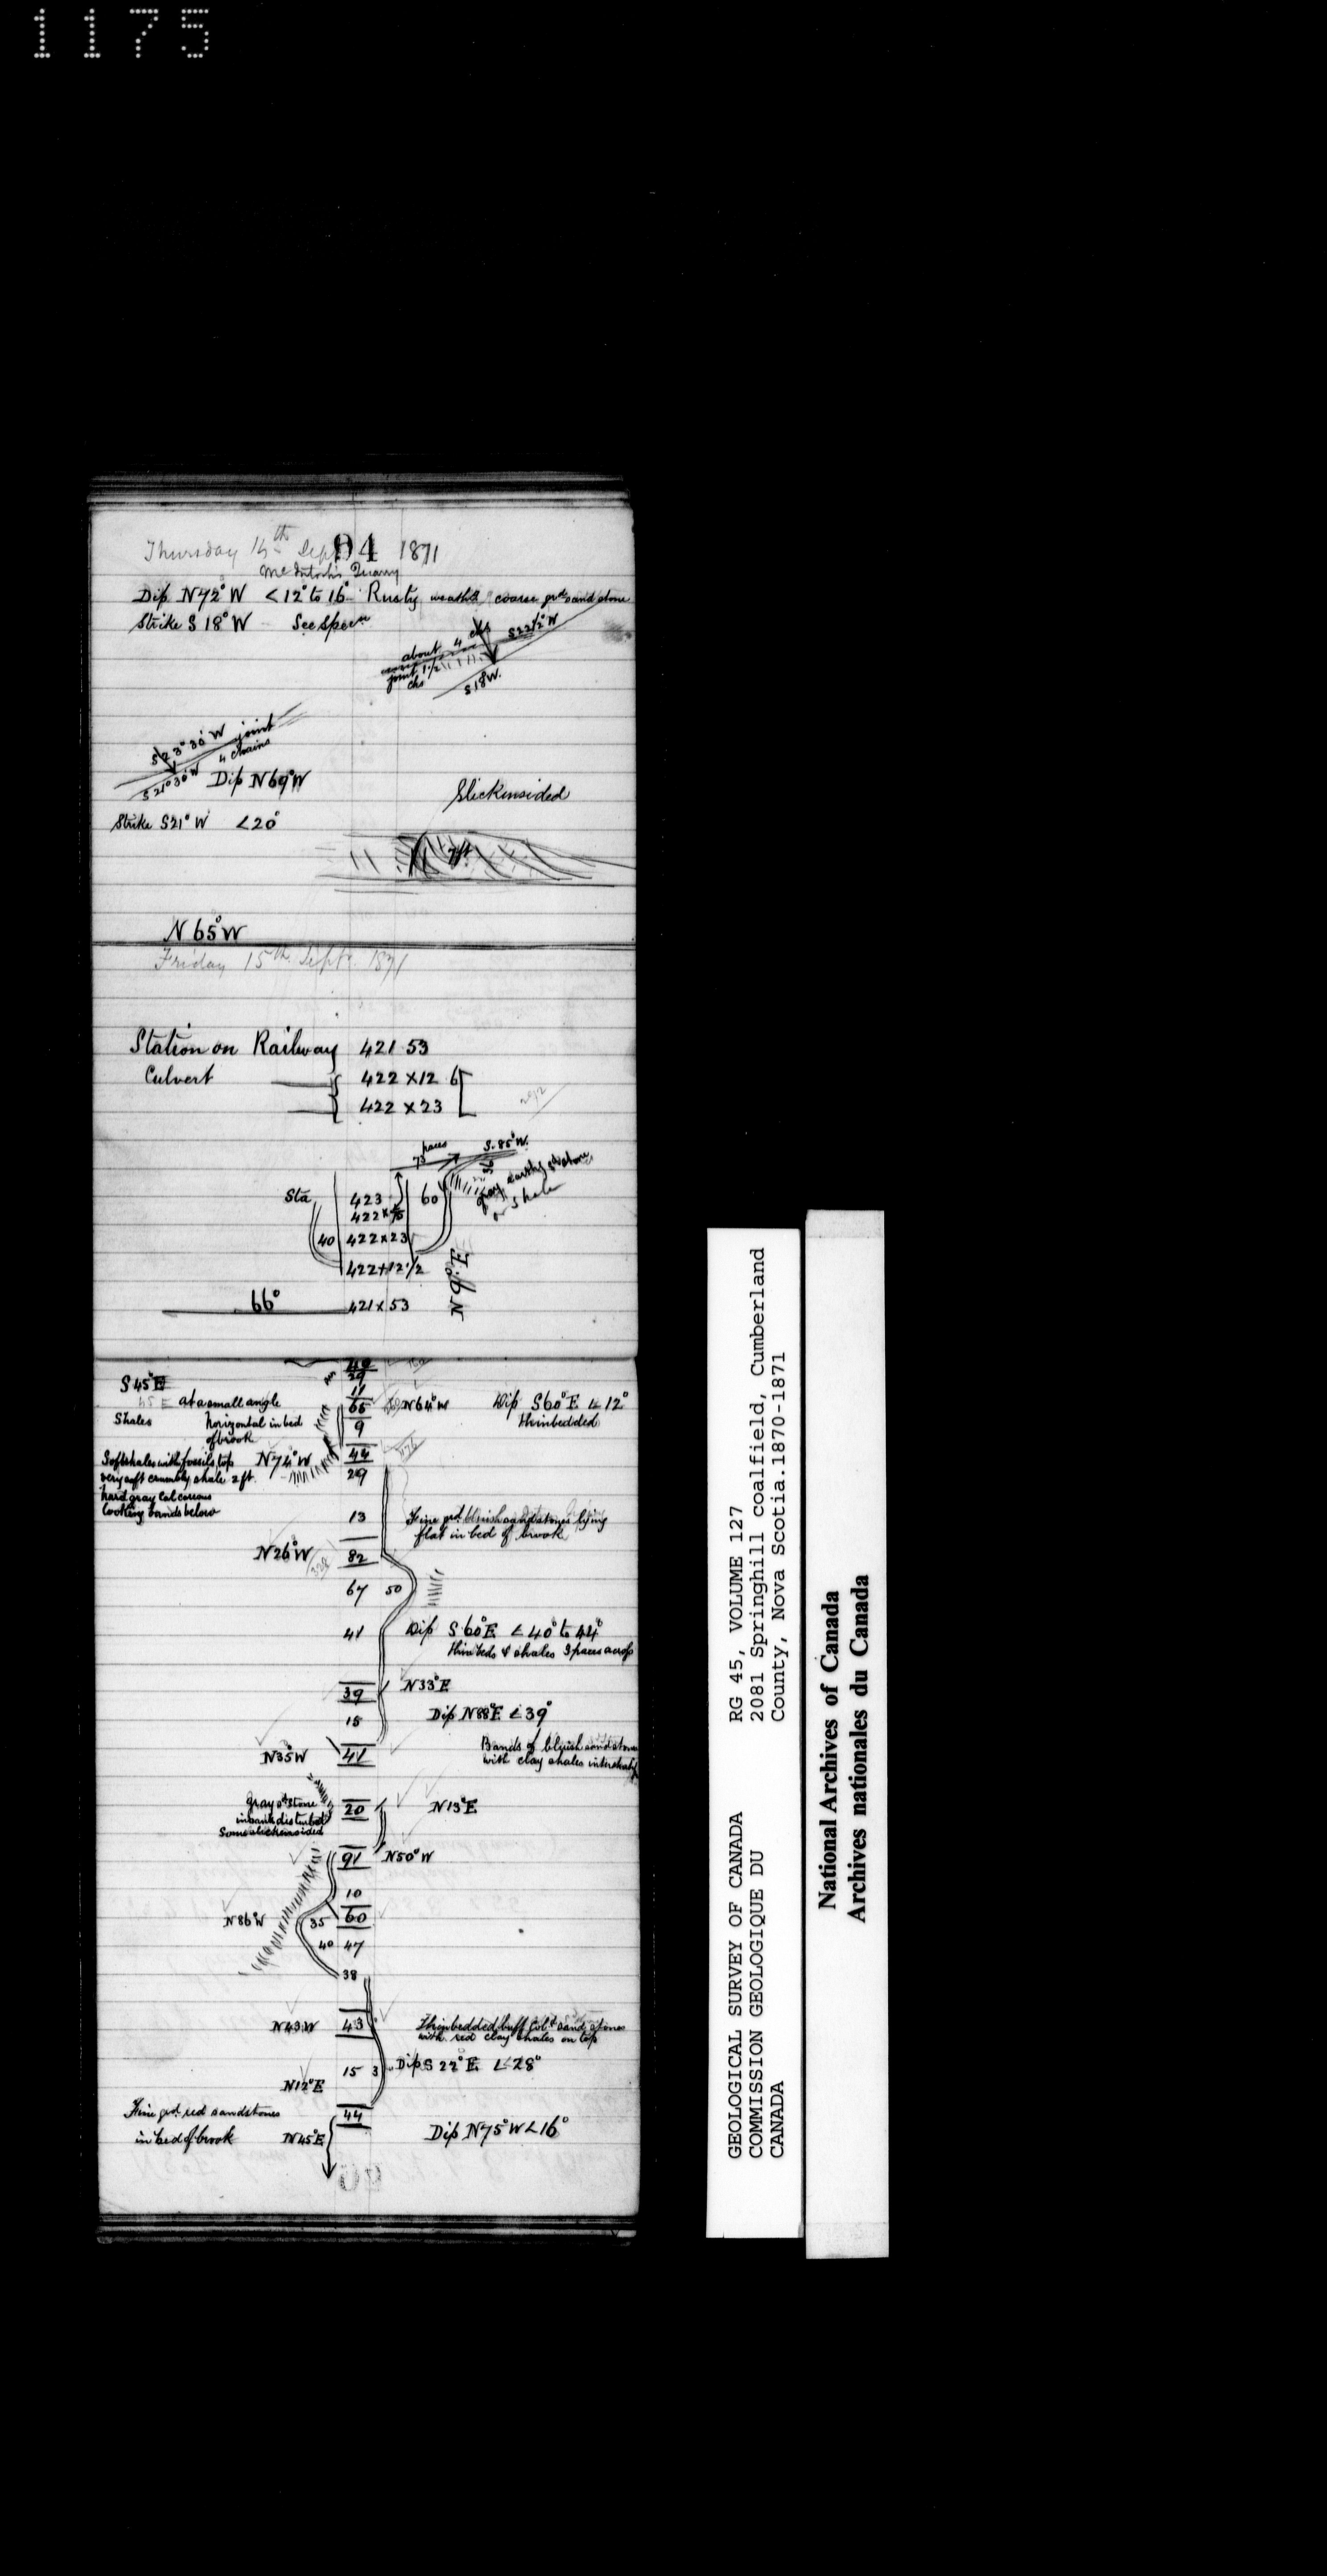 1175
Thursday 14th Sept 94 1871
McIntosh's Quarry
Dip N72°W <12° to 16° Rusty weathd coarse grd sandstone
Strike S18°W See Specn
about 4 chs S22½°W
joint 1½
chs
S18W.
S23°30'W joint
4 chains
S21°30'W Dip N69°W
Slickensided
Strike S21°W <20°
7ft
N65°W
Friday 15th Septr. 1871
Station on Railway 421 53
Culvert 422 x 12 6
422 x 23
292
paces S.85°W.
73
36
gray earthy sdstone
or shale
Sta 423 60
422 x 75
40 422 x 23
422 + 12 1/2
N9°E
66° 421 x 53
40
29
S45°E
11
45 E at a small angle 65 N64°W Dip S60°E < 12°
Shales horizontal in bed 9 thinbedded
of brook
44
Soft shales with fossils, top N74°W
very soft crumbly shale 2 ft. 29
hard gray Calcareous
looking bands below
13 Fine grd. bluish sandstones lying
flat in bed of brook
N26°W 328 82
67 50
41 Dip S60°E < 40° to 44°
thin beds & shales 3 paces across
39 N33°E
15 Dip N88°E < 39°
N35°W 41 Bands of bluish sandstone
with clay shales interstratifd
gray sdstone 20 N13°E
in bank disturbed
Some slickensided
91 N50°W
10
N86°W 35 60
40 47
38
N43W 43 Thinbedded buff Cold. sandstones
with red clay shales on top
15 3 Dip S 22°E < 28°
N12°E
Fine grd. red sandstones 44
in bed of brook N45°E Dip N75°W < 16°
GEOLOGICAL SURVEY OF CANADA RG 45, VOLUME 127
COMMISSION GEOLOGIQUE DU 2081 Springhill coalfield, Cumberland
CANADA County, Nova Scotia.1870-1871
National Archives of Canada
Archives nationales du Canada